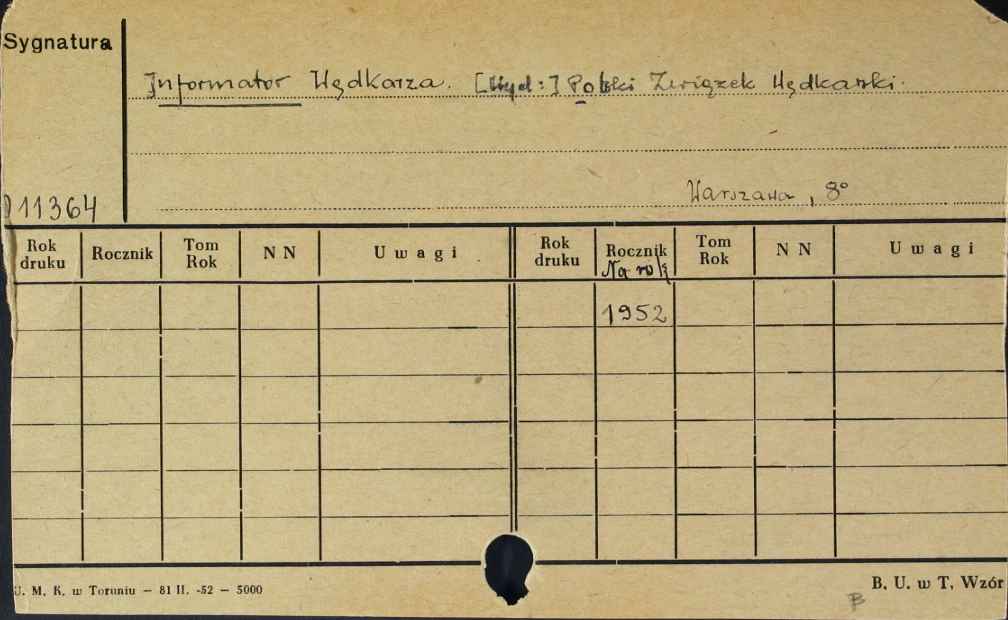 Sygnatura
Informator Wędkarza. [Wyd:] Polski Związek Wędkarski.
Warszawa, 8°
11364
Rok druku Rocznik Tom Rok N N Uwagi Rok druku Rocznik Na rok Tom Rok N N Uwagi
1952
U. M. K. w Toruniu — 81 II. -52 — 5000
B. U. w T. Wzór
B